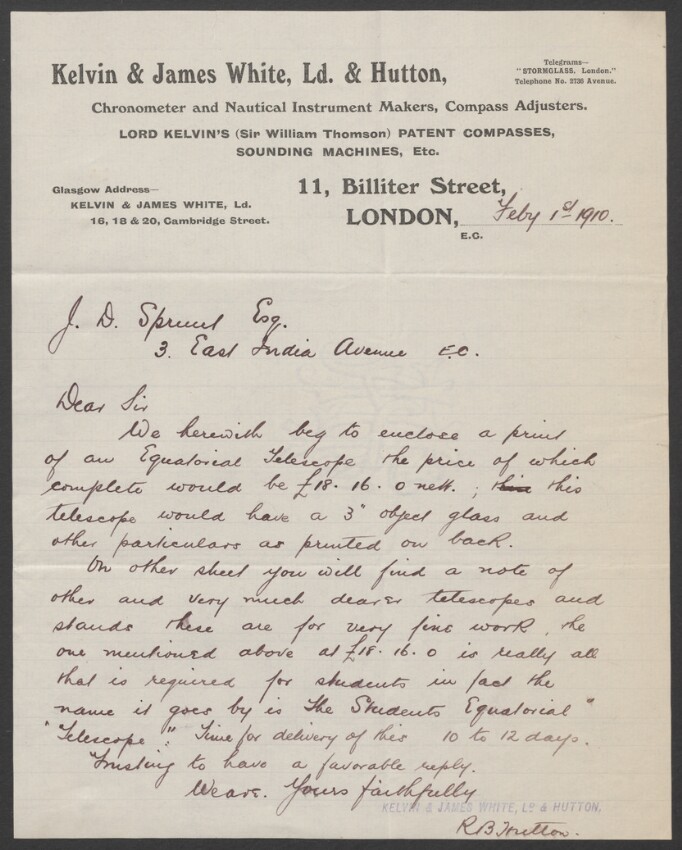 Telegrams—
"STORMGLASS, London."
Telephone No. 2736 Avenue.
Kelvin & James White, Ld. & Hutton,
Chronometer and Nautical Instrument Makers, Compass Adjusters.
LORD KELVIN'S (Sir William Thomson) PATENT COMPASSES,
SOUNDING MACHINES, Etc.
Glasgow Address—
KELVIN & JAMES WHITE, Ld.
16, 18 & 20, Cambridge Street.
11, Billiter Street,
LONDON, Feby 1st 1910.
E.C.
J. D. Sprunt Esq.
3. East India Avenue E.C.
Dear Sir
We herewith beg to enclose a print
of an Equatorial Telescope the price of which
complete would be £18. 16. 0 nett. ; this
telescope would have a 3" object glass and
other particulars as printed on back.
On other sheet you will find a note of
other and very much dearer telescopes and
stands these are for very fine work, the
one mentioned above at £18. 16. 0 is really all
that is required for students in fact the
name it goes by is The Students Equatorial"
"Telescope". Time for delivery of this 10 to 12 days.
Trusting to have a favorable reply.
We are. Yours faithfully
KELVIN & JAMES WHITE, LD & HUTTON,
R B Hutton.